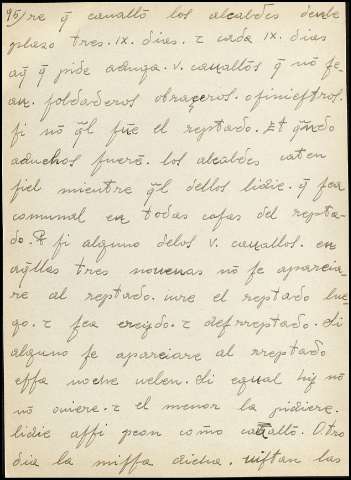 95/re q̃ cauallo los alcaldes denle
plazo tres. ix. dias. τ cada ix. dias
aq̃l q̃ pide aduga. v. caualłos q̃ nõ ſe-
an. ſoldaderos obraçeros. o ſinieſtros.
ſi nõ q̃l fue el reptado. Et q̃ndo
aduchos fuerẽ. los alcaldes caten
fiel mientre q̃l dellos lidie. q̃ ſea
comunal en todas coſas del repta-
do. ſi alguno delos v. cauallos. en
aq̃llas tres nouenas nõ ſe apareia-
re al reptado. iure el reptado lue-
go. τ ſea creydo. τ deſrreptado. Si
alguno ſe apareiare al rreptado
eſſa noche uelen. Si egual hy nõ
nõ ouiere. τ el menor la pidiere.
lidie aſſi peon como cauallo. Otro
dia la miſſa dicha. uiſtan los